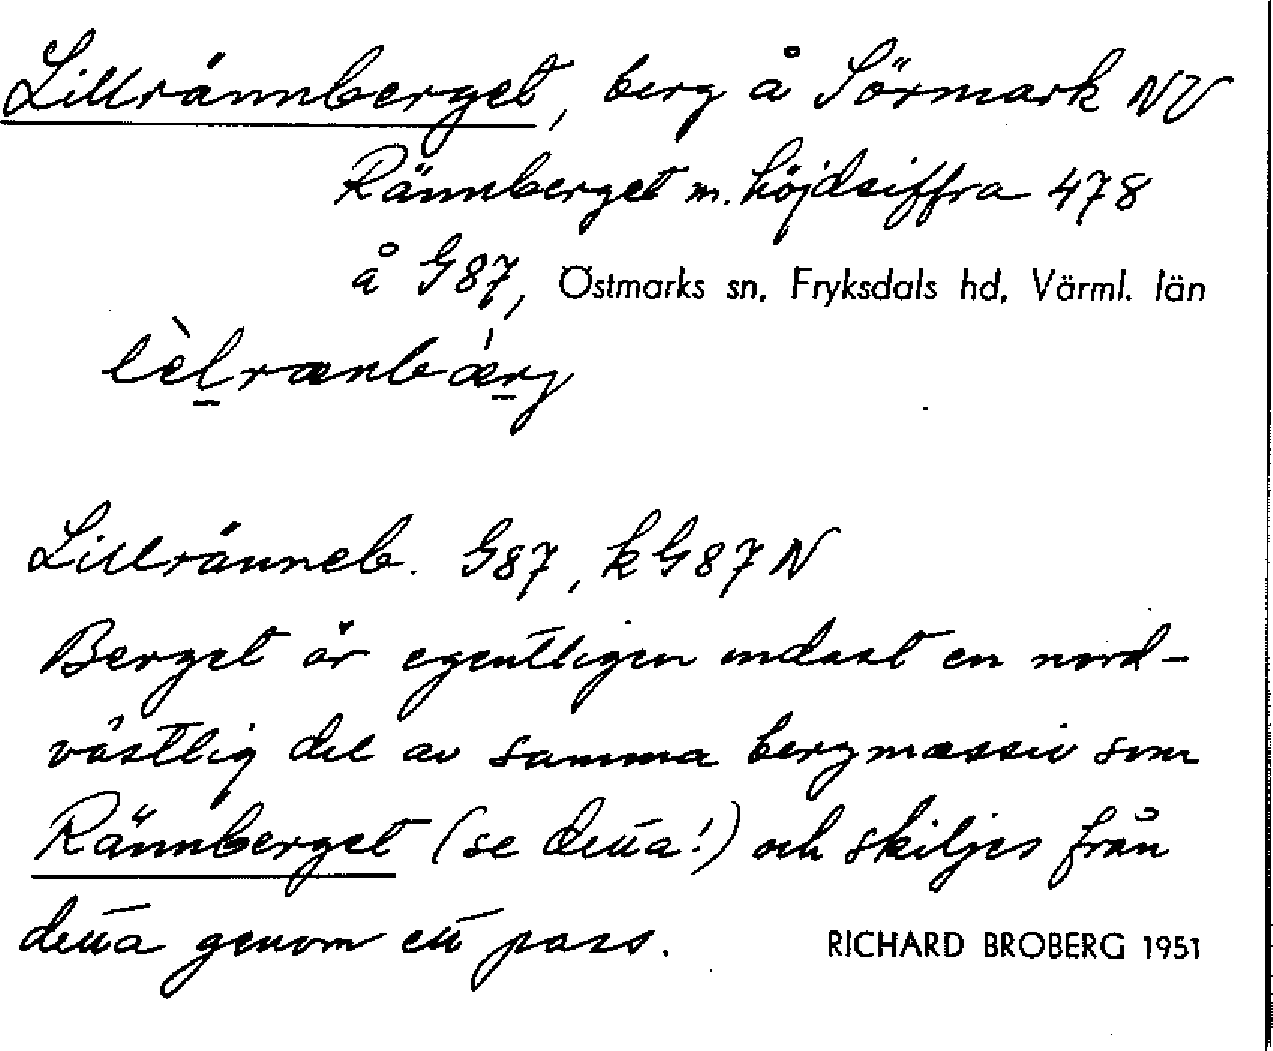 Lillrännberget, berg å Sörmark NV
Rännberget m. höjdsiffra 478
å G87, Östmarks sn, Fryksdals hd, Värml. län
lèlrænbǽrg
Lillränneb. G87, kG87N
Berget är egentligen endast en nord-
västlig del av samma bergmassiv som
Rännberget (se detta!) och skiljes från
detta genom ett pass.
RICHARD BROBERG 1951